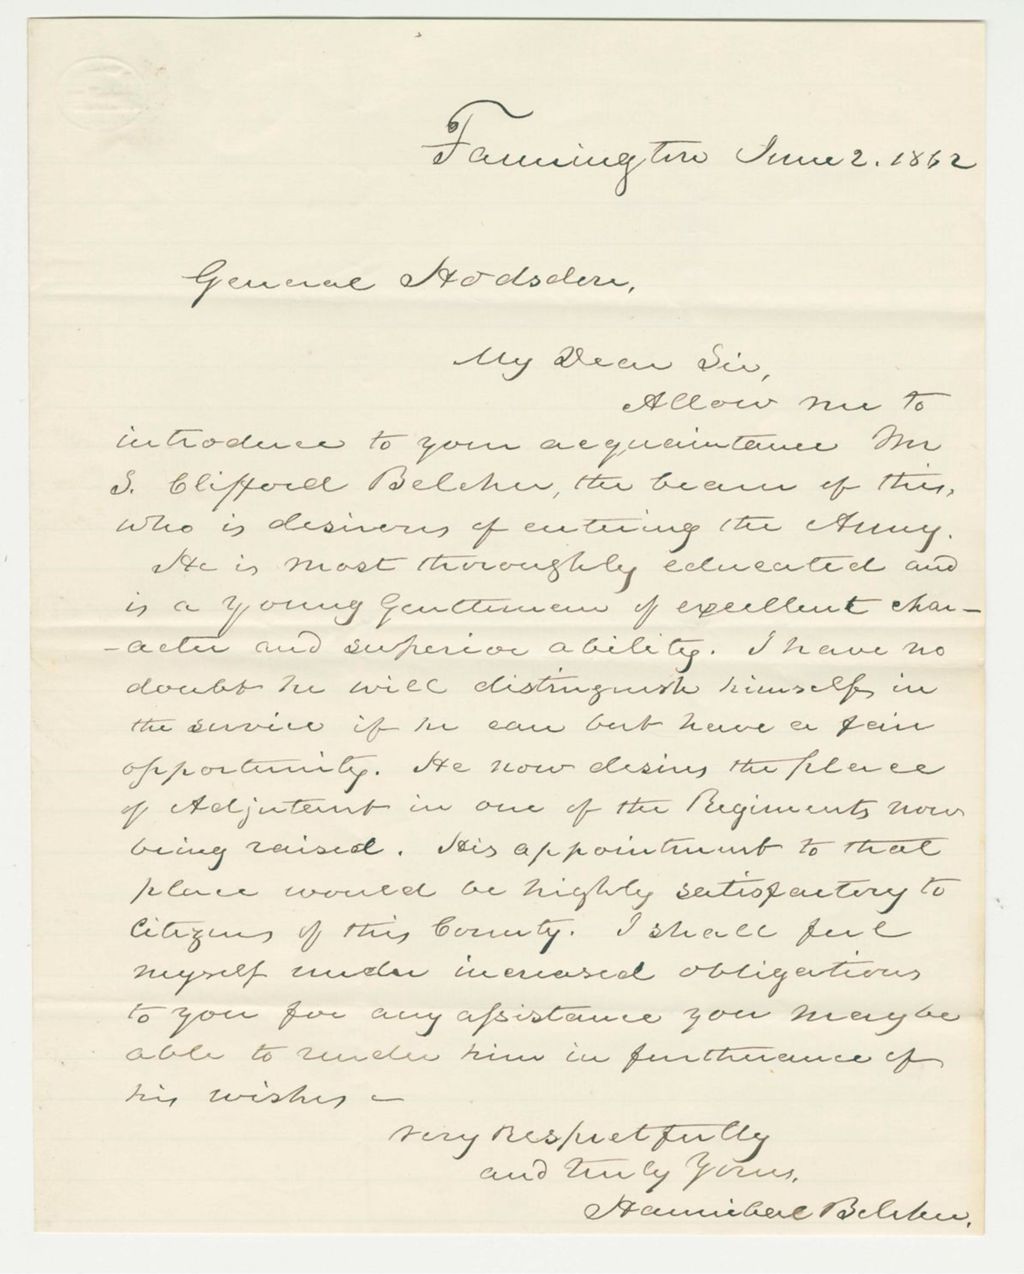 Farmington June 2. 1862
General Hodsdon,
My Dear Sir,
Allow me to
introduce to your acquaintance Mr
S. Clifford Belcher, the bearer of this,
who is desirous of entering the Army.
He is most thoroughly educated and
is a young Gentleman of excellent char-
-acter and superior ability. I have no
doubt he will distinguish himself in
the service if he can but have a fair
opportunity. He now desires the place
of Adjutant in one of the Regiments now
being raised. His appointment to that
place would be highly satisfactory to
Citizens of this County. I shall feel
myself under increased obligations
to you for any assistance you may be
able to render him in furtherance of
his wishes -
Very Respectfully
and truly Yours,
Hannibal Belcher.